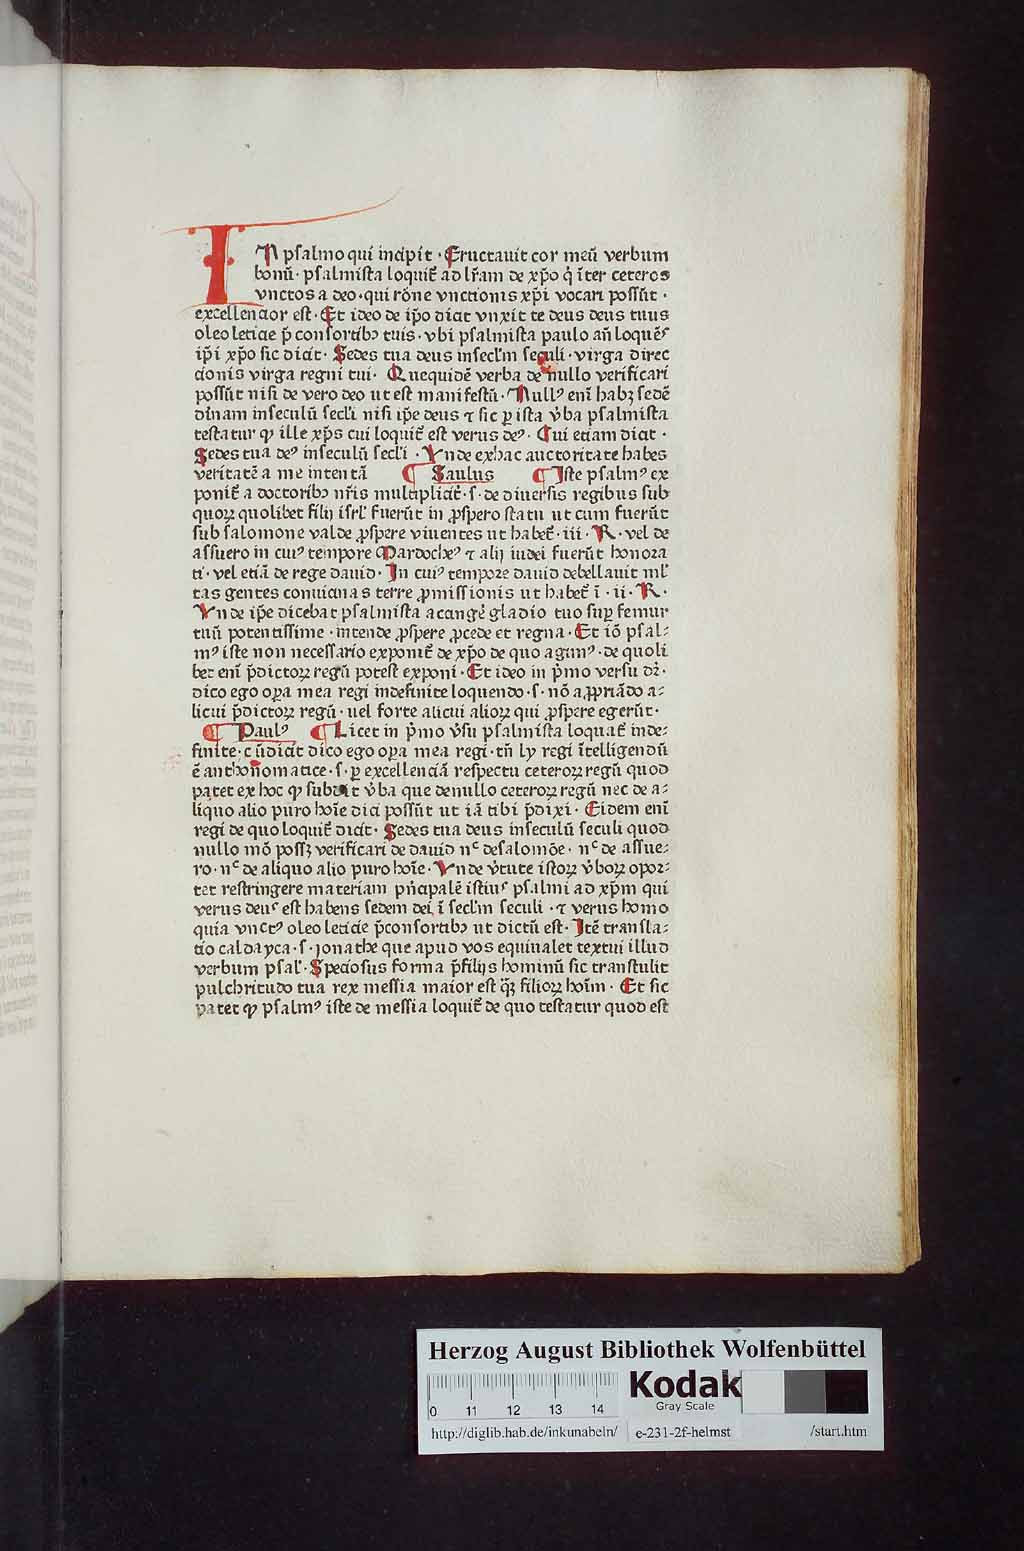 IN psalmo qui incipit · Eructauit cor meū verbum
bonū· psalmista loquit̄ ad lr̄am de xp̄o q̇ īter ceteros
vnctos a deo · qui rōne vnctionis xp̄i vocari possūt ·
excellencior est · Et ideo de ip̄o dicit vnxit te deus deus tuus
oleo leticie p̄ consortibꝫ tuis · vbi psalmista paulo an̄ loquēs
ip̄i xp̄o sic dicit · Sedes tua deus insecl'm seculi · virga direc
cionis virga regni tui · Quequidē verba de nullo verificari
possūt nisi de vero deo ut est manifestū · Nullꝰ eni habꝫ sedē
diīnam inseculū secl'i nisi ip̄e deus ⁊ sic ꝑ ista v̄ba psalmista
testatur ꝙ ille xp̄s cui loquit̄ est verus deꝰ · Cui etiam dicit ·
Sedes tua deꝰ inseculū secl'i · Vnde ex hac auctoritate habes
veritatē a me intentā ¶ Saulus ¶ Iste psalmꝰ ex
ponit̄ a doctoribꝫ nr̄is multiplicit̄ · s · de diuersis regibus sub
quoꝝ quolibet filij isrl' fuerūt in ꝓspero statu ut cum fuerūt
sub salomone valde ꝓspere viuentes ut habet̄ · iii · R · vel de
assuero in cuiꝰ tempore Mardocheꝰ ⁊ alij iudei fuerūt honora
ti · vel etiā de rege dauid · In cuiꝰ tempore dauid debellauit ml'
tas gentes conuicinas terre ꝓmissionis ut habet̄ ī · ii · R ·
Vnde ip̄e dicebat psalmista accingēr̄ gladio tuo suꝑ femur
tuū potentissime · intende ꝓspere ꝓcede et regna · Et iō psal-
mꝰ iste non necessario exponit̄ de xp̄o de quo agimꝰ · de quoli
bet eni p̄dictoꝝ regū potest exponi · Et ideo in p̄mo versu dr̄ ·
dico ego oꝑa mea regi indefinite loquendo · s · nō aꝓpriādo a-
licui p̄dictoꝝ regū · uel forte alicui alioꝝ qui ꝓspere egerūt ·
¶ Paulꝰ ¶ Licet in p̄mo v̄su psalmista loquat̄ inde-
finite · cū dicit dico ego oꝑa mea regi · tn̄ ly regi ītelligendū
ē anthonomatice · s · ꝑ excellenciā respectu ceteroꝝ regū quod
patet ex hoc ꝙ subdit v̄ba que denullo ceteroꝝ regū nec de a-
liquo alio puro hoīe dici possūt ut iā tibi p̄dixi · Eidem eni
regi de quo loquit̄ dicit · Sedes tua deus inseculū seculi quod
nullo mō possꝫ verificari de dauid nͨ de salomōe · nͨ de assue-
ro · nͨ de aliquo alio puro hoīe · Vnde v̄tute istoꝝ v̄boꝝ opor-
tet restringere materiam pn̄cipalē istiuꝰ psalmi ad xp̄m qui
verus deuꝰ est habens sedem dei ī secl'm seculi · ⁊ verus homo
quia vnctꝰ oleo leticie p̄consortibꝫ ut dictū est · Itē transla-
tio caldayca · s · jonathe que apud vos equiualet textui illud
verbum psal' · Speciosus forma p̄filijs hominū sic transtulit
pulchritudo tua rex messia maior est qꝫ filioꝝ hoīm · Et sic
patet ꝙ psalmꝰ iste de messia loquit̄ de quo testatur quod est
Herzog August Bibliothek Wolfenbüttel
0 11 12 13 14
Kodak
Gray Scale
http://diglib.hab.de/inkunabeln/ e-231-2f-helmst /start.htm